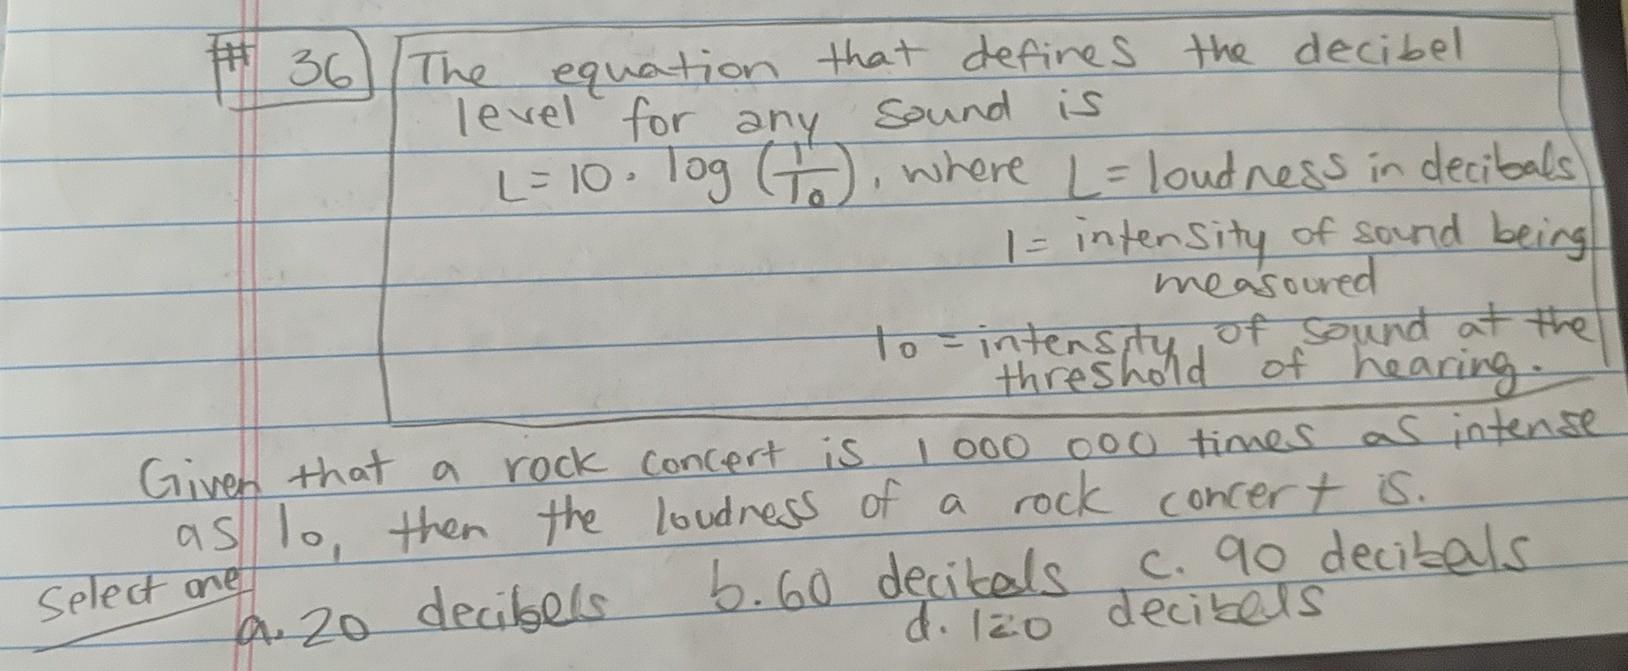 # 36 The equation that defines the decibel
level for any sound is
L = 10 · log (I/I₀), where L = loudness in decibals
I = intensity of sound being
measoured
I₀ = intensity of sound at the
threshold of hearing.
Given that a rock concert is 1 000 000 times as intense
as I₀, then the loudness of a rock concert is.
Select one
a. 20 decibels b. 60 decibals c. 90 decibals
d. 120 decibels